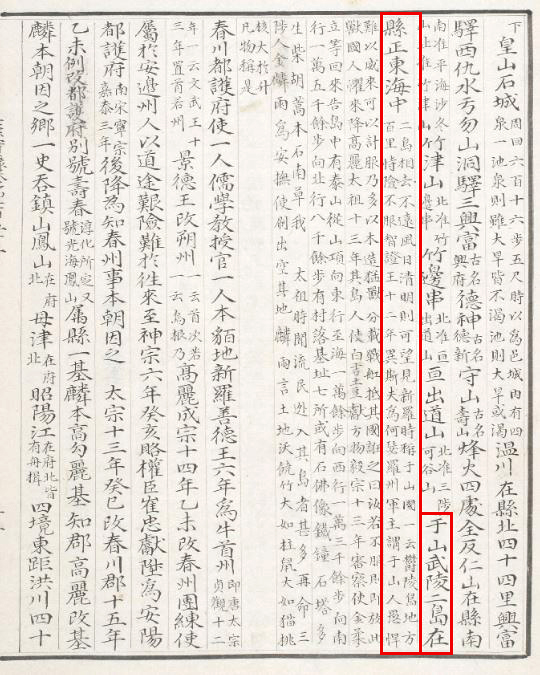 下皇山石城周回六百十六步五尺時以爲邑城內有四泉一池泉則雖大旱皆不渴池則大旱或渴溫川在縣北四十四里興富
驛西仇水亏勿山洞驛三興富古名興府德神古名德新守山古名壽山烽火四處全反仁山在縣南
南准平海沙冬山北准竹津山竹津山北准竹邊串竹邊串北准亘出道山亘出道山北准三陟可谷山于山武陵二島在
縣正東海中二島相去不遠風日清明則可望見新羅時稱于山國一云鬱陵島地方百里恃險不服智證王十二年異斯夫爲何瑟羅州軍主謂于山人愚悍
難以威來可以計服乃多以木造猛獸分載戰舡抵其國誑之曰汝若不服則即放此
獸國人懼來降高麗太祖十三年其島人使白吉土豆獻方物毅宗十三年審察使金柔
立等回來告島中有泰山從山頂向東行至海一萬餘步向西行一萬三千餘步向南
行一萬五千餘步向北行八千餘步有村落基址七所或有石佛像鐵鍾石塔多
生柴胡蒿本石南草我 太祖時聞流民逃入其島者甚多再命三
陟人金麟雨爲安撫使刷出空其地麟雨言土地沃饒竹大如柱鼠大如猫桃
核大於升
凡物稱是
春川都護府使一人儒學敎授官一人本貊地新羅善德王六年爲牛首州即唐太宗貞觀十二
年一云文武王十三年置首若州景德王改朔州一云首次若一云烏根乃高麗成宗十四年乙未改春州團練使
屬於安邊州人以道途艱險難於往來至神宗六年癸亥賂權臣崔忠獻陞爲安陽
都護府南宋寧宗嘉泰三年後降爲知春州事本朝因之 太宗十三年癸巳改春川郡十五年
乙未例改都護府別號壽春淳化所定又號光海鳳山屬縣一基麟本高勾麗基知郡高麗改基
麟本朝因之鄕一史呑鎭山鳳山在府北母津在府北昭陽江在府北皆有舟楫四境東距洪川四十